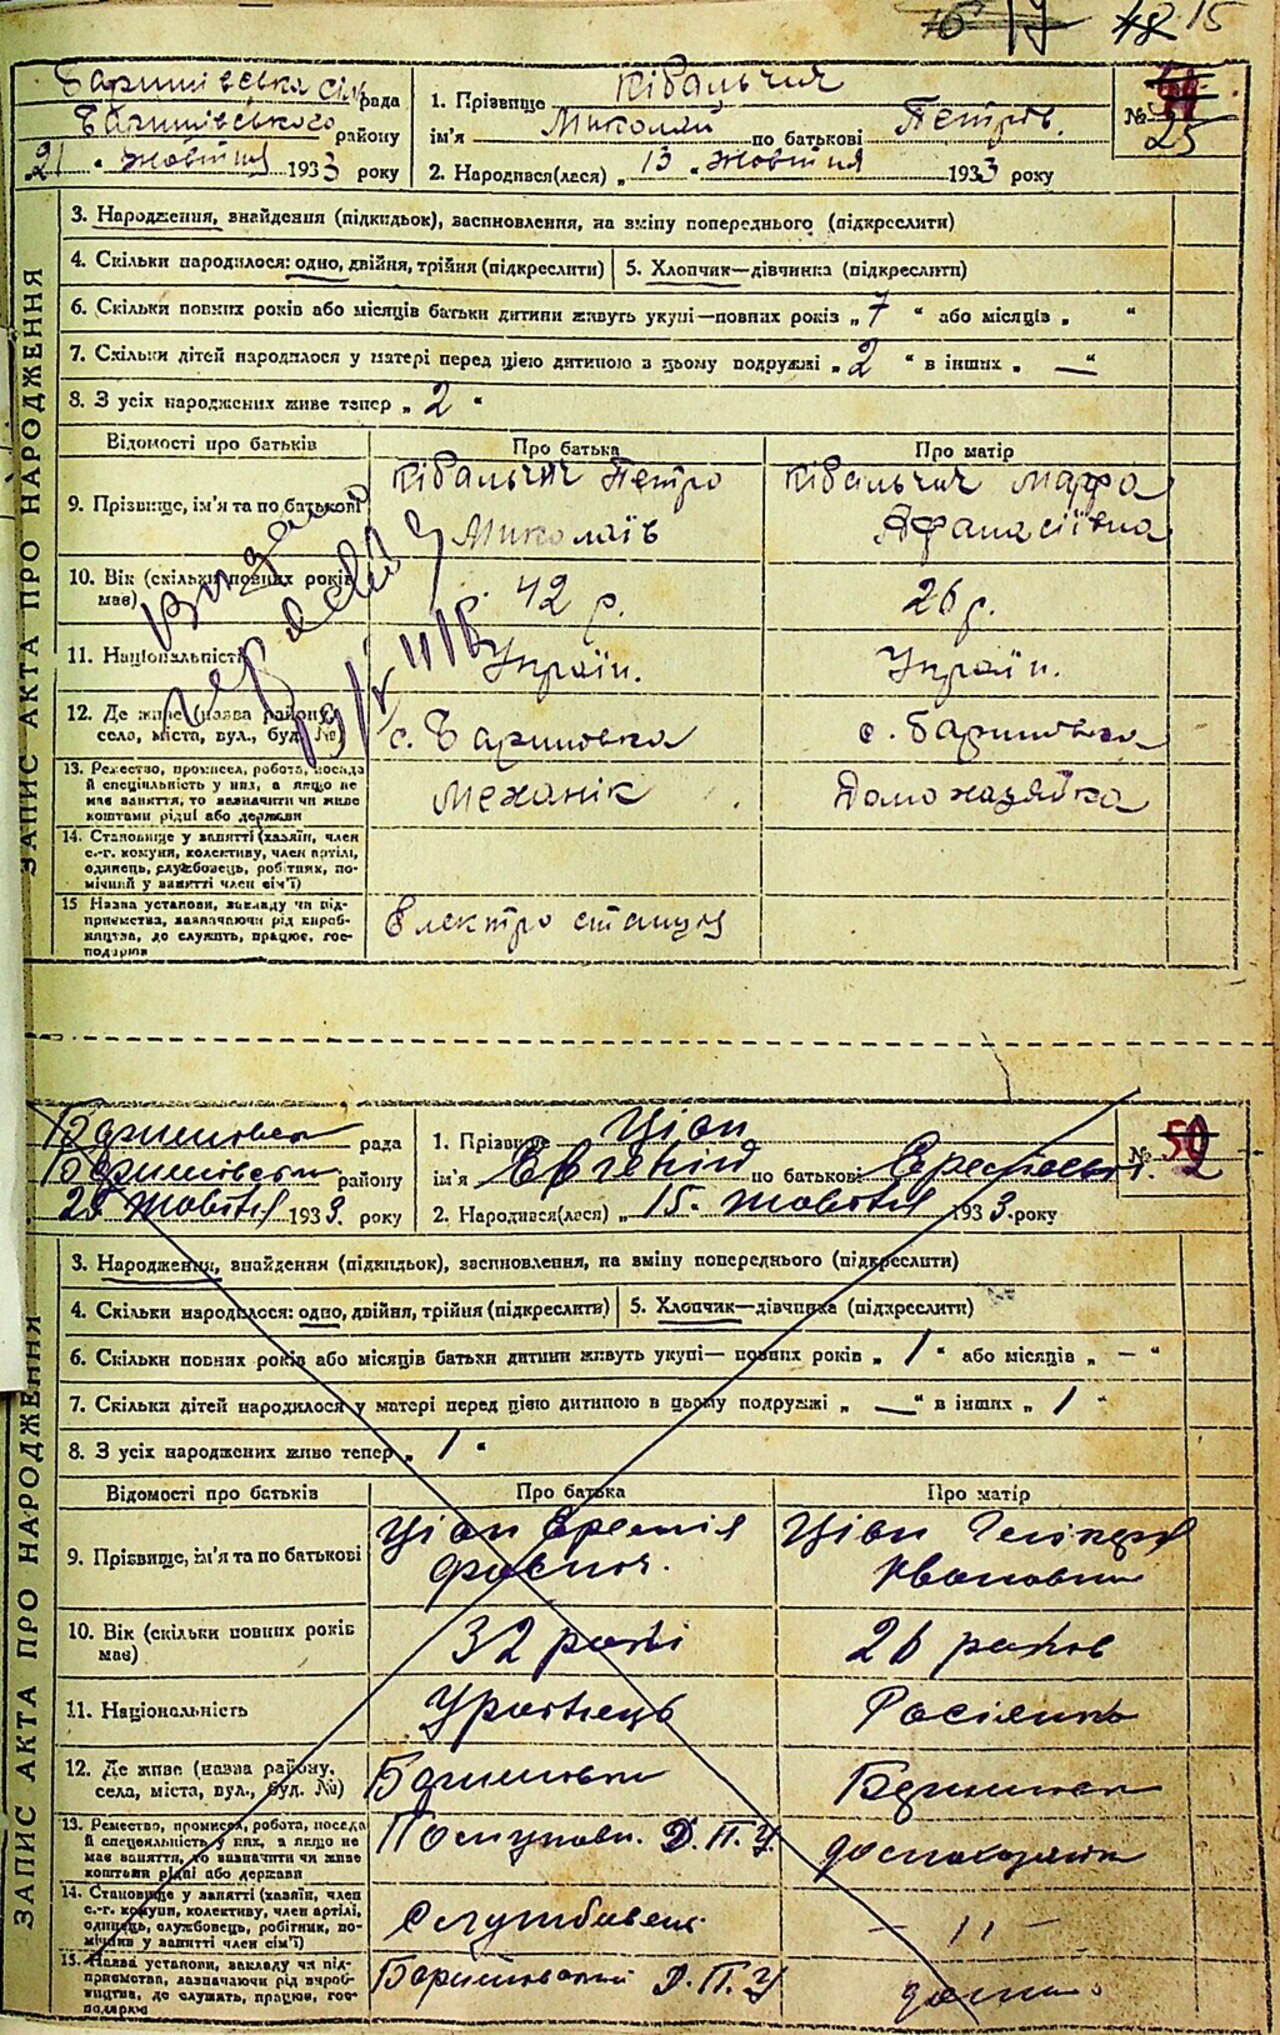 15
ЗАПИС АКТА ПРО НАРОДЖЕННЯ
Баришівська сіль рада
Баришівського району
„21 “ жовтня 1933 року
1. Прізвище Кібальчич
ім'я Миколай по батькові Петров.
2. Народився(лася) „ 13 “ жовтня 1933 року
№ 25
3. Народження, знайдення (підкидьок), заспновлення, на зміну попереднього (підкреслити)
4. Скільки народилося: одно, двійня, трійня (підкреслити)
5. Хлопчик—дівчинка (підкреслити)
6. Скільки повних років або місяців батьки дитини живуть укупі—повних років „ 7 “ або місяців „ “
7. Скільки дітей народилося у матері перед цією дитиною в цьому подружжі „ 2 “ в інших „ — “
8. З усіх народжених живе тепер „ 2 “
Відомості про батьків
Про батька
Про матір
9. Прізвище, ім'я та по батькові
Кібальчич Петро
Миколаїв
Кібальчич Марфа
Афанасіївна
10. Вік (скільки повних років
має)
42 р.
26 р.
11. Національність
Україн.
Україн.
12. Де живе (назва району,
села, міста, вул., буд. №)
с. Баришовка
с. Баришовка
13. Ремество, промисел, робота, посада
й спеціяльність у них, а якщо не
має заняття, то зазначити чи живе
коштами рідні або держави
Механік
Домохазяйка
14. Становище у занятті (хазяїн, член
с.-г. комуни, колективу, член артілі,
одинець, службовець, робітник, по-
мічний у занятті член сім'ї)
15 Назва установи, закладу чи під-
приємства, зазначаючи рід вироб-
ництва, де служить, працює, гос-
подарює
Електро станция
видано
ЗАПИС АКТА ПРО НАРОДЖЕННЯ
Баришовськ рада
Баришівськ району
25 жовтня 1933. року
1. Прізвище Ціон
ім'я Евгеній по батькові
2. Народився(лася) „ 15. жовтня 1933. року
№ 50 2
3. Народження, знайдення (підкидьок), заспновлення, на зміну попереднього (підкреслити)
4. Скільки народилося: одно, двійня, трійня (підкреслити)
5. Хлопчик—дівчинка (підкреслити)
6. Скільки повних років або місяців батьки дитини живуть укупі— повних років „ 1 “ або місяців „ — “
7. Скільки дітей народилося у матері перед цією дитиною в цьому подружжі „ — “ в інших „ 1 “
8. З усіх народжених живе тепер „ 1 “
Відомості про батьків
Про батька
Про матір
9. Прізвище, ім'я та по батькові
Ціон
Ціон
Ивановна
10. Вік (скільки повних років
має)
32 роки
26 років
11. Національність
Українець
Росіянка
12. Де живе (назва району,
села, міста, вул., буд. №)
Баришовка
Баришовка
13. Ремество, промисел, робота, посада
й спеціяльність у них, а якщо не
має заняття, то зазначити чи живе
коштами рідні або держави
Д.П.У.
домохазяйка
14. Становище у занятті (хазяїн, член
с.-г. комуни, колективу, член артілі,
одинець, службовець, робітник, по-
мічний у занятті член сім'ї)
Службовець
— 11 —
15. Назва установи, закладу чи під-
приємства, зазначаючи рід вироб-
ництва, де служить, працює, гос-
подарює
Баришовський Д.П.У
дома